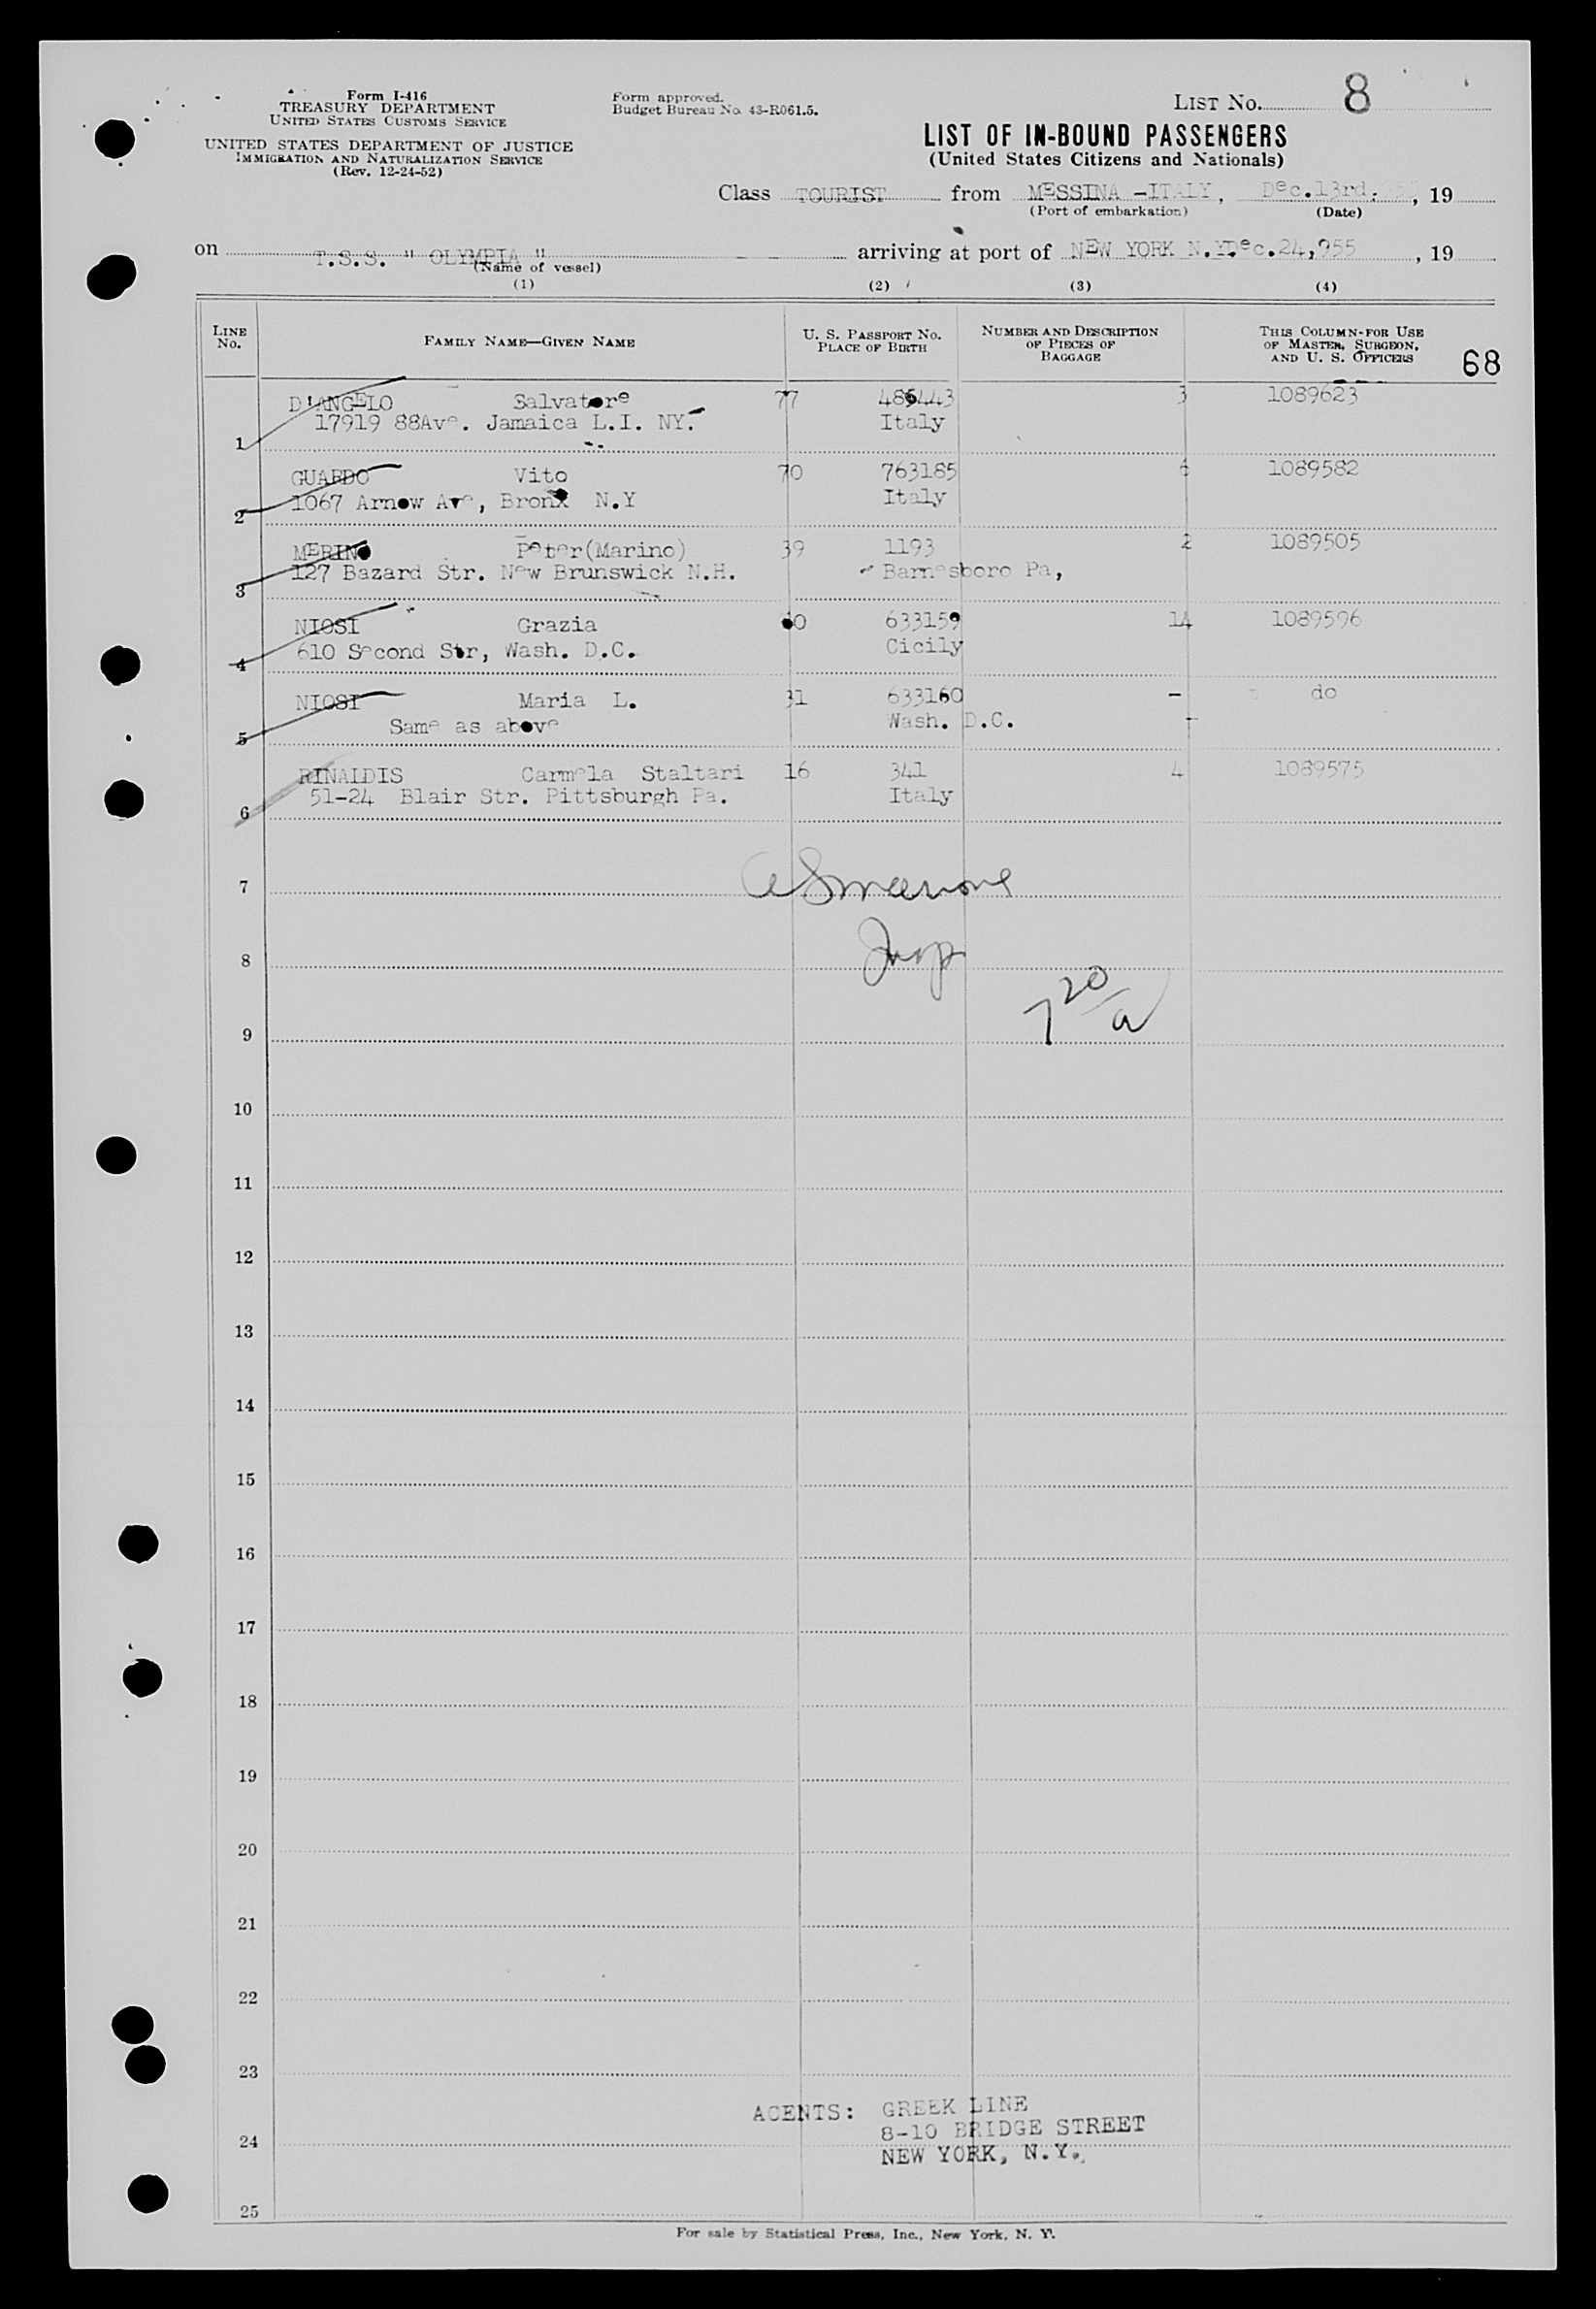 Form I-416
TREASURY DEPARTMENT
UNITED STATES CUSTOMS SERVICE
UNITED STATES DEPARTMENT OF JUSTICE
IMMIGRATION AND NATURALIZATION SERVICE
(Rev. 12-24-52)
Form approved.
Budget Bureau No. 43-R061.5.
LIST No. 8
LIST OF IN-BOUND PASSENGERS
(United States Citizens and Nationals)
Class TOURIST from MESSINA -ITALY, Dec.13rd. , 19
(Port of embarkation) (Date)
on T.S.S. " OLYMPIA " arriving at port of NEW YORK N.Y.Dec.24,955 , 19
(Name of vessel)
(1) (2) (3) (4)
LINE No. FAMILY NAME—GIVEN NAME U. S. PASSPORT No. PLACE OF BIRTH NUMBER AND DESCRIPTION OF PIECES OF BAGGAGE THIS COLUMN FOR USE OF MASTER, SURGEON, AND U. S. OFFICERS 68
D'ANGELO Salvatore 77 485443 3 1089623
1 17919 88Ave. Jamaica L.I. NY. Italy
GUARDO Vito 70 763185 6 1089582
2 1067 Arnow Ave, Bronx N.Y Italy
MERINO Peter(Marino) 39 1193 2 1089505
3 127 Bazard Str. New Brunswick N.H. Barnesboro Pa,
NIOSI Grazia 60 633159 14 1089596
4 610 Second Str, Wash. D.C. Cicily
NIOSI Maria L. 31 633160 - do
5 Same as above Wash. D.C. -
RINALDIS Carmela Staltari 16 341 4 1089575
6 51-24 Blair Str. Pittsburgh Pa. Italy
7
8 Insp
9 7 20/a
10
11
12
13
14
15
16
17
18
19
20
21
22
23
AGENTS: GREEK LINE
8-10 BRIDGE STREET
24
NEW YORK, N.Y.
25
For sale by Statistical Press, Inc., New York, N. Y.